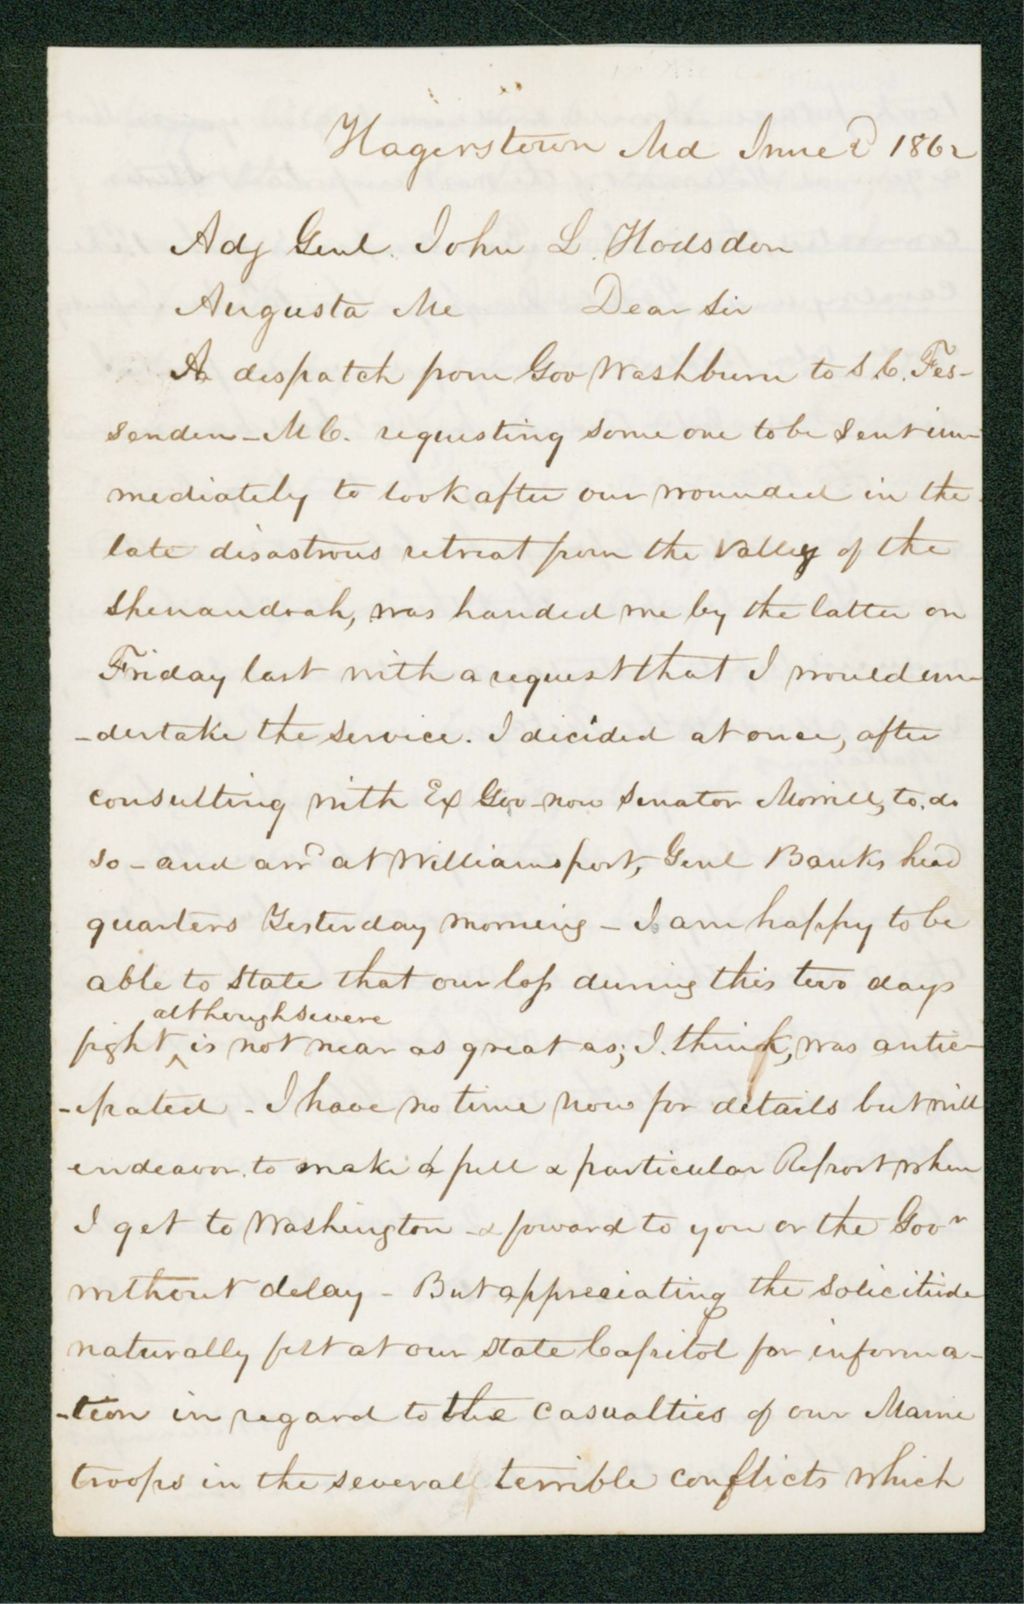 Hagerstown Md June 2d 1862
Adj Genl. John L. Hodsdon
Augusta Me Dear Sir
A dispatch from Gov Washburn to S. C. Fes-
senden - M C. requesting some one to be sent im-
mediately to look after our wounded in the
late disastrous retreat from the valley of the
Shenandoah, was handed me by the latter on
Friday last with a request that I would un-
-dertake the service. I decided at once, after
consulting with Ex Gov - now Senator Morrill, to do
so - and arrd at Williamsport, Genl Banks head
quarters Yesterday morning - I am happy to be
able to state that our loss during this two days
although severe
fight ^ is not near as great as, I think, was antic-
-ipated - I have no time now for details but will
endeavor to make a full & particular Report when
I get to Washington - & foward to you or the Govr
without delay - But appreciating the solicitude
naturally felt at our State Capitol for informa-
-tion in regard to the casualties of our Maine
troops in the several terrible conflicts which